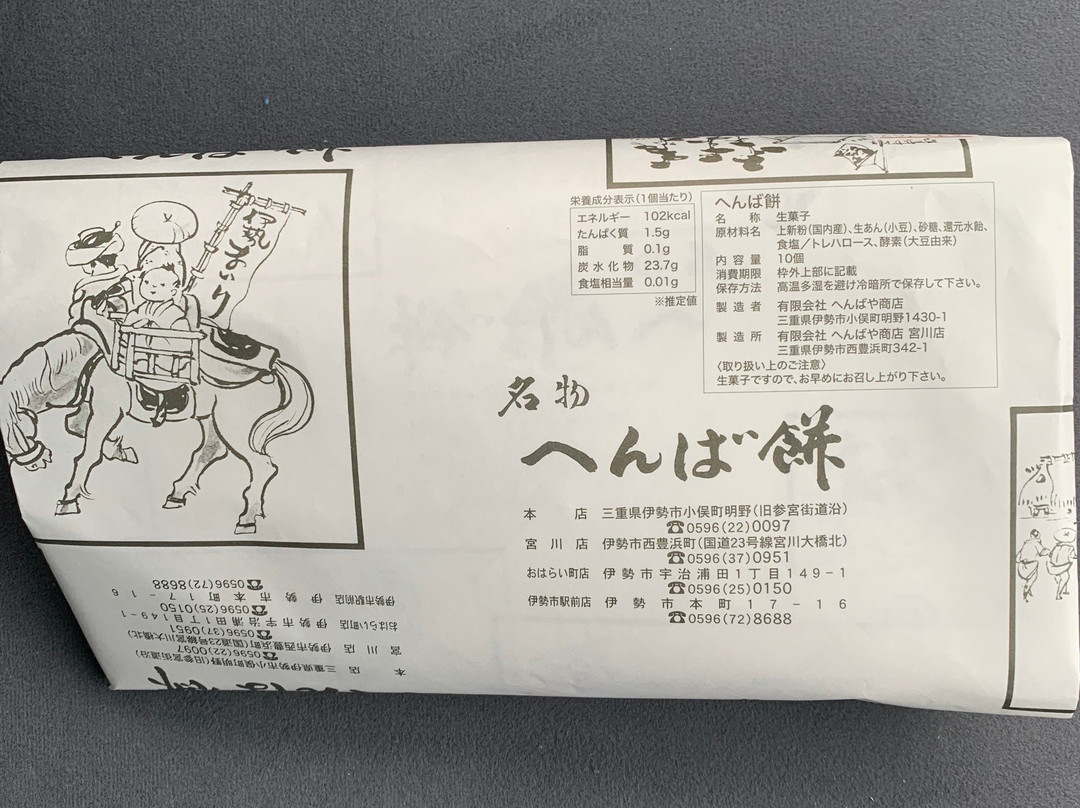 伊勢まいり
栄養成分表示(1個当たり)
エネルギー 102kcal
たんぱく質 1.5g
脂質 0.1g
炭水化物 23.7g
食塩相当量 0.01g
※推定値
へんば餅
名称 生菓子
原材料名 上新粉(国内産)、生あん(小豆)、砂糖、還元水飴、
食塩/トレハロース、酵素(大豆由来)
内容量 10個
消費期限 枠外上部に記載
保存方法 高温多湿を避け冷暗所で保存して下さい。
製造者 有限会社 へんばや商店
三重県伊勢市小俣町明野1430-1
製造所 有限会社 へんばや商店 宮川店
三重県伊勢市西豊浜町342-1
〈取り扱い上のご注意〉
生菓子ですので、お早めにお召し上がり下さい。
名物
へんば餅
本店 三重県伊勢市小俣町明野(旧参宮街道沿)
☎0596(22)0097
宮川店 伊勢市西豊浜町(国道23号線宮川大橋北)
☎0596(37)0951
おはらい町店 伊勢市宇治浦田1丁目149-1
☎0596(25)0150
伊勢市駅前店 伊勢市本町17-16
☎0596(72)8688
へんば餅
本店 三重県伊勢市小俣町明野(旧参宮街道沿)
☎0596(22)0097
宮川店 伊勢市西豊浜町(国道23号線宮川大橋北)
☎0596(37)0951
おはらい町店 伊勢市宇治浦田1丁目149-1
☎0596(25)0150
伊勢市駅前店 伊勢市本町17-16
☎0596(72)8688